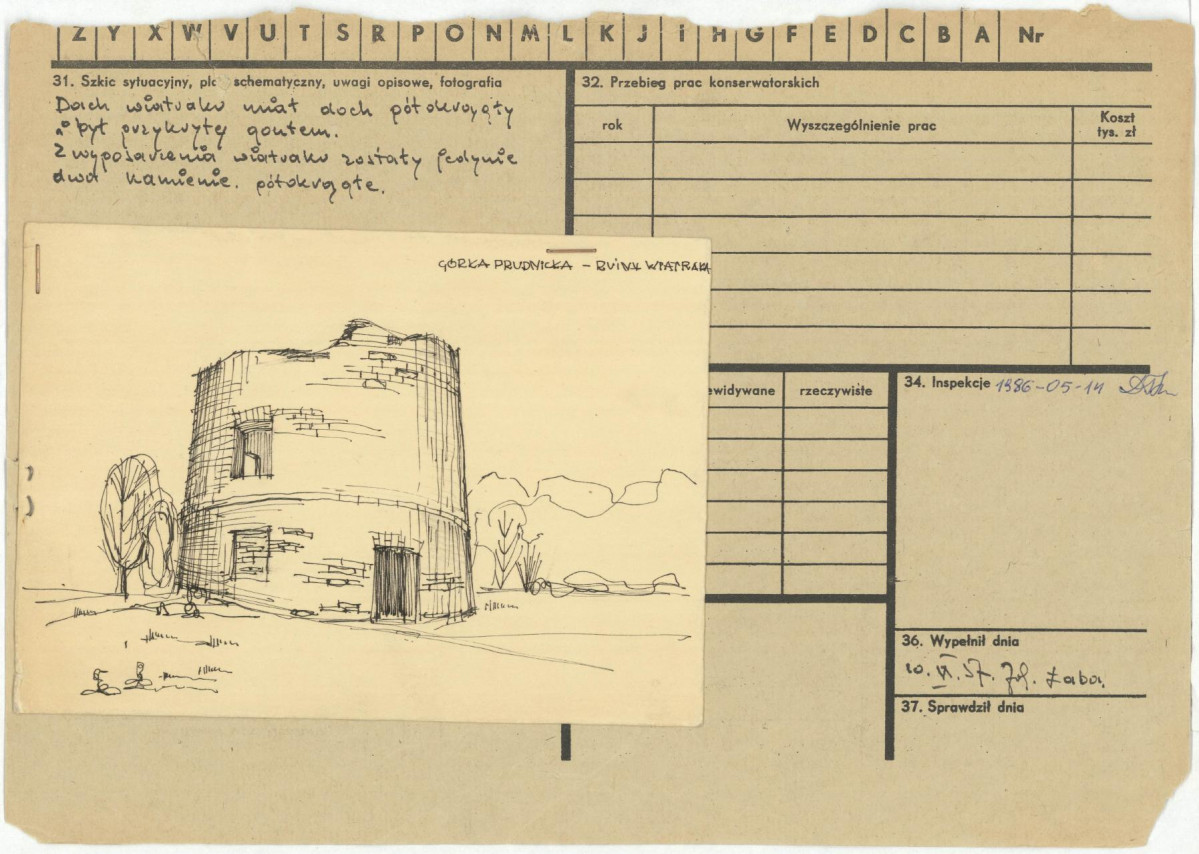 Z Y X W V U T S R P O N M L K J I H G F E D C B A Nr
31. Szkic sytuacyjny, schematyczny, uwagi opisowe, fotografia
Dach wiatraka miał dach półokrągły
i był przykryty gontem.
Z wyposażenia wiatraka zostały jedynie
dwa kamienie. półokrągłe.
GÓRKA PRUDNICKA – RUINY WIATRAKA
32. Przebieg prac konserwatorskich
rok
Wyszczególnienie prac
Koszt
tys. zł
ewidywane
rzeczywiste
34. Inspekcje 1986-05-14
36. Wypełnił dnia
Łaba.
37. Sprawdził dnia